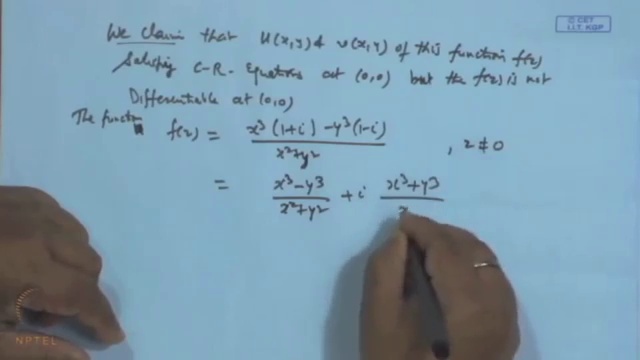 © CET
I.I.T. KGP
We Claim that U(x,y) & v(x,y) of this function f(z)
Satisfies C-R. Equations at (0,0) but the f(z) is not
Differentiable at (0,0)
The function f(z) = x³(1+i) - y³(1-i) / x²+y² , z ≠ 0
= x³-y³ / x²+y² + i x³+y³ / x
NPTEL